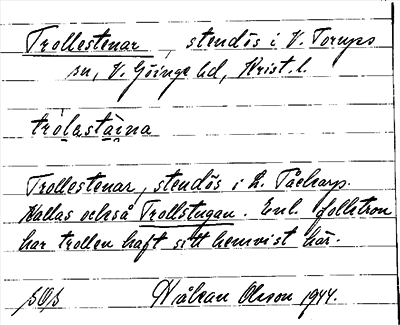 Trollestenar, stendös i V. Torups
sn, V. Göinge hd, Krist. l.
trolastäina
Trollestenar, stendös i L. Tåckarp.
Kallas också Trollstugan. Enl. folktron
har trollen haft sitt hemvist här.
Håkan Olsson 1944.